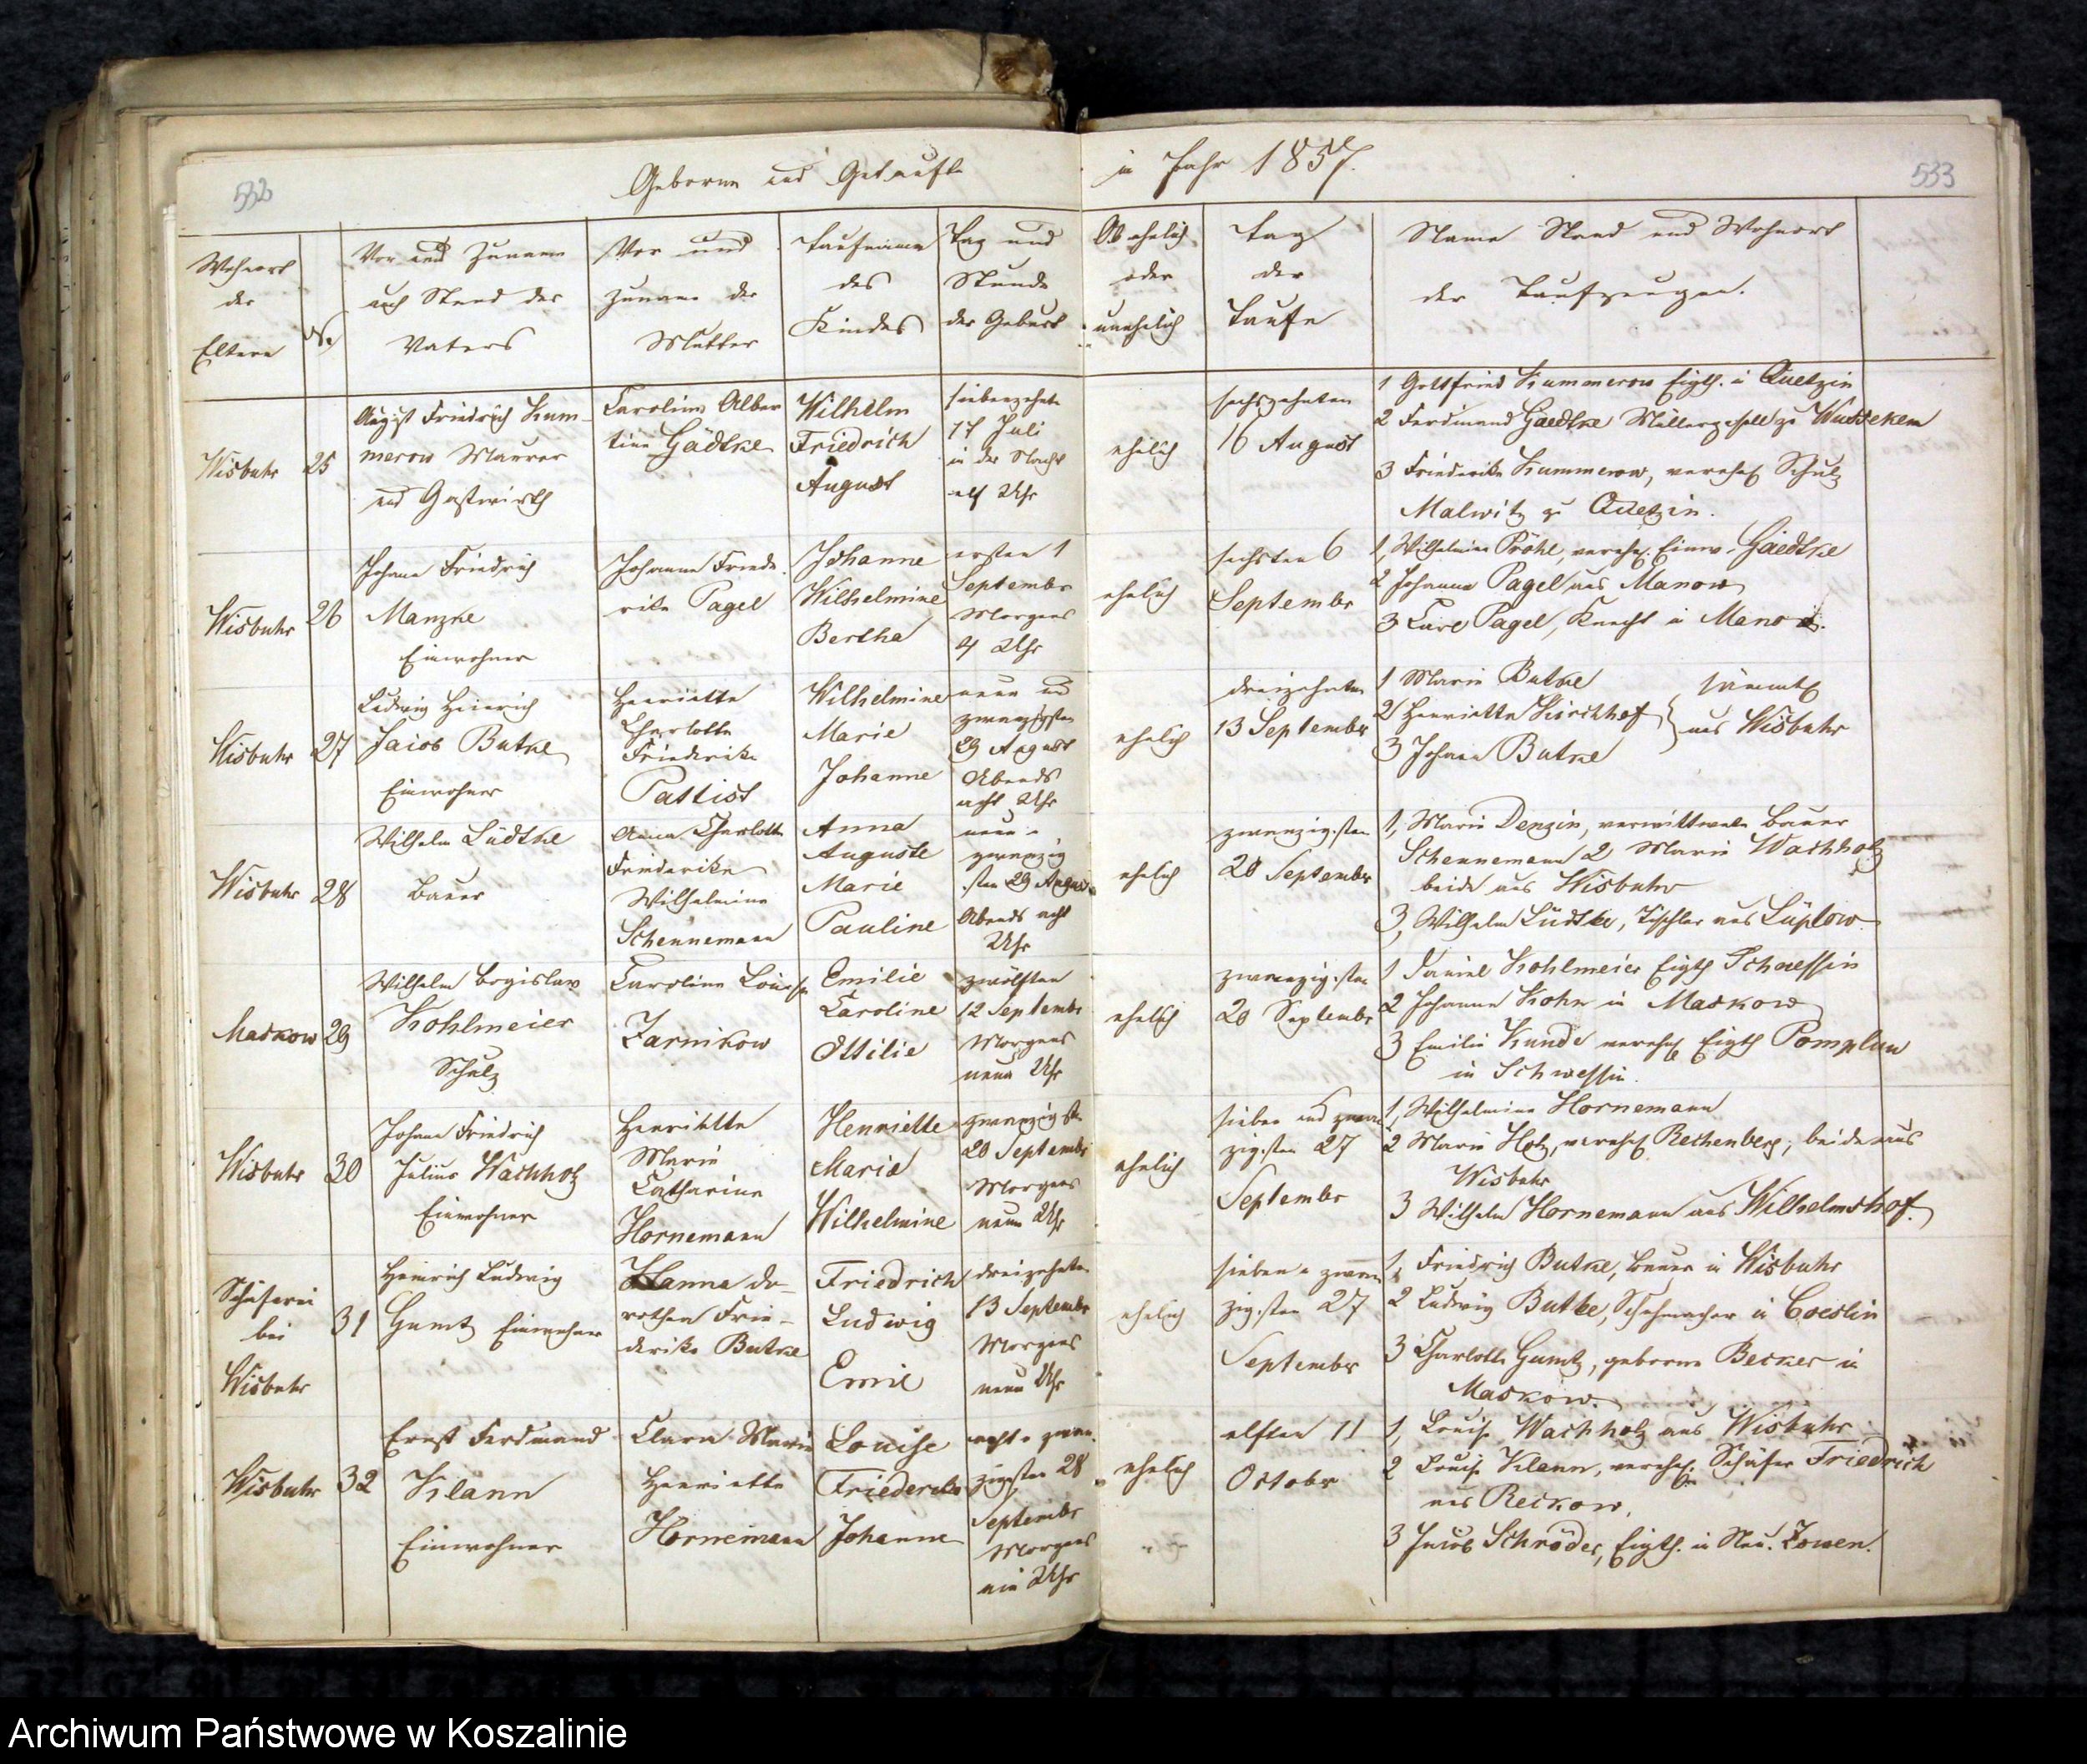 532
Geborne und Getaufte
im Jahr 1857.
533
Wohnort
der
Eltern
No
Vor und Zuname
auch Stand des
Vaters
Vor und
Zuname der
Mutter
Taufname
des
Kindes
Tag und
Stunde
der Geburt
Ob ehelich
oder
unehelich
Tag
der
Taufe
Name Stand und Wohnort
der Taufzeugen.
Wisbuhr
25
August Friedrich Kum-
merow Maurer
und Gastwirth
Caroline Alber
tine Gädtke
Wilhelm
Friedrich
August
siebenzehnte
17 Juli
in der Nacht
elf Uhr
ehelich
sechszehnten
16 August
1 Gottfried Kummerow Eigth. in Quetzin
2 Ferdinand Gaedtke Müllergesell zu Wussekem
3 Friederike Kummerow, verehel Schulz
Malwitz zu Quetzin.
Wisbuhr
26
Johann Friedrich
Manzke
Einwohner
Johanne Friede
rike Pagel
Johanne
Wilhelmine
Bertha
ersten 1
Septembr
Morgens
4 Uhr
ehelich
sechsten 6
Septembr
1, Wilhelmine Pröhl, verehel. Einw. Gaedtke
2 Johanne Pagel aus Manow
3 Carl Pagel, Knecht in Manow.
Wisbuhr
27
Ludwig Heinrich
Jacob Butke
Einwohner
Henriette
Charlotte
Friederike
Wilhelmine
Marie
Johanne
neun und
zwanzigsten
29 August
Abends
acht Uhr
ehelich
dreizehnten
13 September
1 Marie Butke
2 Henriette Kirchhof
3 Johann Butke
sämmtl
aus Wisbuhr
Wisbuhr
28
Wilhelm Lüdtke
Bauer
Anna Charlotte
Friederike
Wilhelmine
Schennemann
Anna
Auguste
Marie
Pauline
neun-
zwanzig
sten 29 August
Abends acht
Uhr
ehelich
zwanzigsten
20 September
1, Marie Denzin, verwittwete Bauer
Schennemann 2 Marie Wachholz
beide aus Wisbuhr
3, Wilhelm Lüdtke, Tischler aus Lüptow.
Maskow
29
Wilhelm Bogislav
Kohlmeier
Schulz
Caroline Louise
Zarnikow
Emilie
Caroline
Ottilie
zwölften
12 Septembr
Morgens
neun Uhr
ehelich
zwanzigsten
20 Septembr
1 Daniel Kohlmeier Eigth Schwessin
2 Johanne Kohn in Maskow
3 Emilie Kunde verehel Eigth Pomplun
in Schwessin.
Wisbuhr
30
Johann Friedrich
Julius Wachholz
Einwohner
Henriette
Marie
Catharine
Hornemann
Henriette
Marie
Wilhelmine
zwanzigste
20 Septembr
Morgens
neun Uhr
ehelich
sieben und zwan
zigsten 27
Septembr
1, Wilhelmine Hornemann
2 Marie Holz, verehel Rechenberg, beide aus
Wisbuhr
3 Wilhelm Hornemann aus Wilhelmshof.
Schäferei
bei
Wisbuhr
31
Heinrich Ludwig
Gumtz Einwohner
Hanna Do-
rothea Frie-
derike Butke
Friedrich
Ludwig
Emil
dreizehnten
13 Septembr
Morgens
neun Uhr
ehelich
sieben u zwan
zigsten 27
September
1, Friedrich Butke, Bauer in Wisbuhr
2 Ludwig Butke, Schuhmacher in Coeslin
3 Charlotte Gumtz, geborne Becker in
Maskow.
Wisbuhr
32
Ernst Ferdinand
Klann
Einwohner
Clara Marie
Henriette
Hornemann
Louise
Friederike
Johanne
acht u zwan
zigsten 28
Septembr
Morgens
ein Uhr
ehelich
elften 11
Octobr
1, Louise Wachholz aus Wisbuhr
2 Louise Klann, verehel. Schäfer Friedrich
aus Reckow.
3 Jacob Schröder, Eigth. in Neu. Zowen.
Archiwum Państwowe w Koszalinie